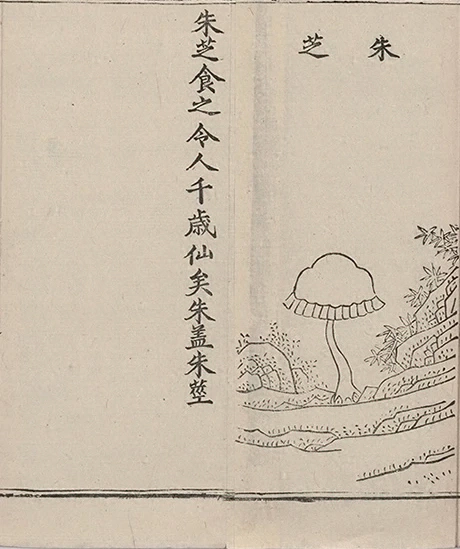 朱芝
朱芝食之令人千歳仙矣朱盖朱莖